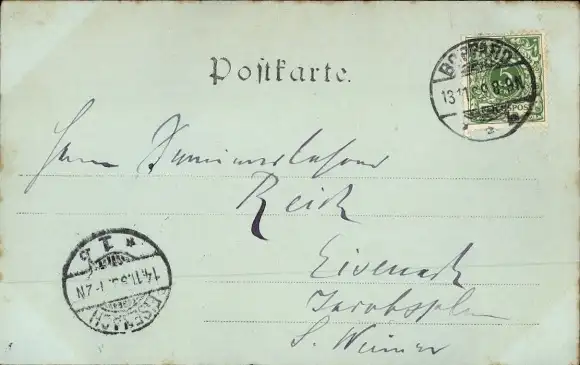 Postkarte.
BOPPARD
13.11.
8-9N
REICHSPOST
5
Herrn
Reich
Eisenach
Jacobsplan
S. Weimar
EISENACH
14.11.
1-2N